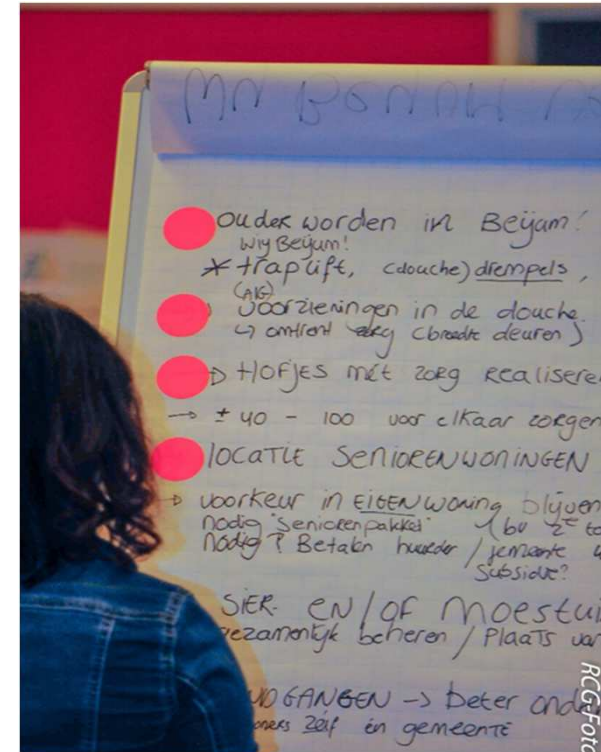 ouder worden in Beijum!
wij Beijum!
* traplift, (douche) drempels,
voorzieningen in de douche
↳ omtrent (breedte deuren)
▷ HOFJES met zorg Realisere
→ ± 40 - 100 voor elkaar zorgen
LOCATIE SENIORENWONINGEN
→ voorkeur in EIGEN woning blijven
nodig "seniorenpakket" (bv 2e to
nodig? Betalen / gemeente
Subsidie?
SIER- EN/OF Moestui
gezamenlijk beheren / Plaats van
GANGEN → beter onde
oners zelf en gemeente
RCG-Foto